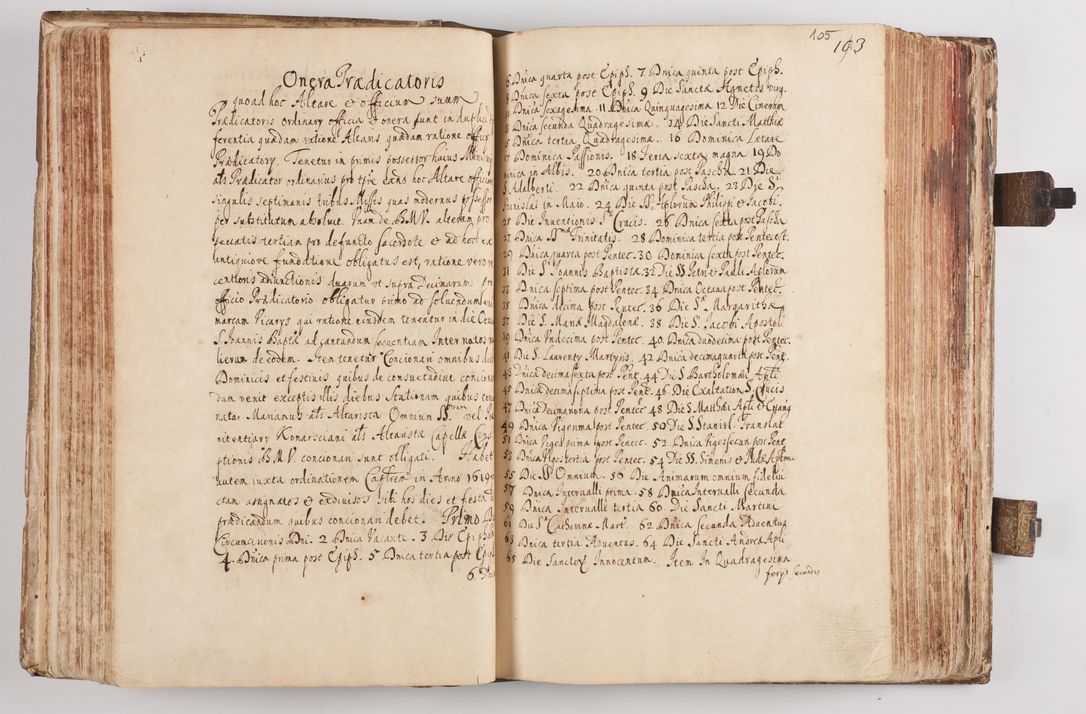 Onera Prædicatoris
quoad hoc Altare et officium suum
Prædicatoris ordinary officia et onera sunt in duplici
ferentia quædam ratione Altaris quædam ratione officy
Prædicatory. Tenetur in primis possessor huius
als Prædicator ordinarius pro tpre eadno hoc Altare officiu
singulis septimanis tribus Missis quas modernus possessor
per substitutum absoluit. Vnam de B.M.V. alteram pro
peccatis tertiam pro defuncto Sacerdote et ad hoc ex
antiquiore fundatione obligatus est, ratione vero
centioris adiunctionis duarum ut supra Decimarum
officio Prædicatorio obligatur primo ad soluendum
marcam Vicarys qui ratione eiusdem tenentur in die Octa
S. Joannis Baptæ ad cantandum sequentiam Inter natos m
lierum de eodem. Item tenetur Concionari omnibus die
Dominicis et festiuis quibus de consuetudine concion
dum venit exceptis illis diebus Stationum quibus
natar Marianus als Altarista Omnium SS. vel Pæ
nitentiary Konarsciani als Altaristæ Capellæ Conce
ptionis B.M.V. concionari sunt obligati. Habet
autem iuxta ordinationem Capitrem in Anno 1619
ctam assignatos et exdiuisos sibi hos dies et festa
prædicandum quibus concionari debet. Primo
Circumcisionis Dni. 2 Dnica Vacante. 3 Die Epiphan
4. Dnica prima post Epiph. 5 Dnica tertia post Epip
6. Dni
105
103
6 Dnica quarta post Epiph. 7 Dnica quinta post Epiph.
Dnica sexta post Epiph. 9 Die Sanctæ Agnetis virg.
Dnica Sexagesima. 11 Dnica Quinquagesima 12 Die Cinerum
Dnica secunda Quadragesima. 14 Die Sancti Matthiæ
Dnica tertia Quadragesima. 16 Dominica Lætare
Dominica Passionis. 18 Feria Sexta magna 19 Do
nica in Albis. 20 Dnica tertia post Pascha 21 Die
S. Adalberti. 22 Dnica quinta post Pascha. 23 Die S.
nislai in Maio. 24 Die SS. Aplorum Philipi et Jacobi.
25 Die Inuentionis S. Crucis. 26 Dnica Sexta post Pascha
27 Dnica SS. Trinitatis. 28 Dominica tertia post Pentecost.
29 Dnica quarta post Pentec. 30 Dominica Sexta post Pentec.
31 Die S. Joannis Baptistæ 32 Die SS Petri et Pauli Aplorum
33 Dnica septima post Pentec. 34 Dnica Octaua post Pentec.
35 Dnica decima post Pentec. 36 Die S. Margarithæ
37 Die S. Mariæ Magdalenæ. 38 Die S. Jacobi Apostoli
39 Dnica Undecima post Pentec. 40 Dnica duodecima post Pentec.
41 Die S. Laurenty Martyris. 42 Dnica decimaquarta post Pent.
43 Dnica decimasexta post Pent. 44 Die S. Bartholomæi Apli
45 Dnica decima septima post Pent. 46 Die Exaltation. S. Crucis
47 Dnica Decimanona post Pentec. 48 Die S. Matthæi Apli et Euang
49 Dnica Vigesima post Pentec. 50 Die S. Stanisl. Translat
51 Dnica Viges prima post Pentec. 52 Dnica Viges secun post Pent
53 Dnica Viges tertia post Pentec. 54 Die SS. Simonis et Judæ Aplom
55 Die SS Omnium. 56 Die Animarum omnium fideliu
57 Dnica Interualli prima. 58 Dnica Interualli secunda
59 Dnica Interualli tertia 60 Die Sancti Martini
61 Die S. Catherinæ Mart. 62 Dnica Secunda Aduentus
63 Dnica tertia Aduentus. 64 Die Sancti Andreæ Apli
65 Die Sanctor Innocentum. Item In Quadragesima
ferys secundis